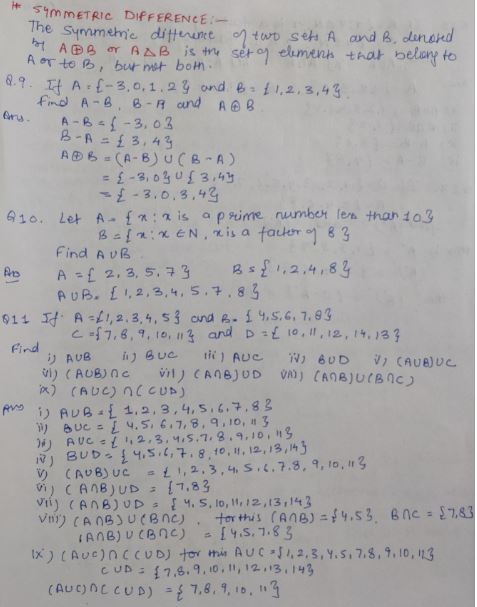 * SYMMETRIC DIFFERENCE:-
The symmetric difference of two sets A and B, denoted
by A⊕B or A△B is the set of elements that belong to
A or to B, but not both.
Q.9. If A = {-3, 0, 1, 2} and B = {1, 2, 3, 4}.
Find A-B, B-A and A⊕B.
Ans. A-B = {-3, 0}
B-A = {3, 4}
A⊕B = (A-B) ∪ (B-A)
= {-3, 0} ∪ {3, 4}
= {-3, 0, 3, 4}
Q10. Let A = {x : x is a prime number less than 10}
B = {x : x ∈ N, x is a factor of 8}
Find A∪B.
Ans A = {2, 3, 5, 7} B = {1, 2, 4, 8}
A∪B = {1, 2, 3, 4, 5, 7, 8}
Q11 If A = {1, 2, 3, 4, 5} and B = {4, 5, 6, 7, 8}
C = {7, 8, 9, 10, 11} and D = {10, 11, 12, 14, 13}
Find
i) A∪B ii) B∪C iii) A∪C iv) B∪D v) (A∪B)∪C
vi) (A∪B)∩C vii) (A∩B)∪D viii) (A∩B)∪(B∩C)
ix) (A∪C)∩(C∪D)
Ans i) A∪B = {1, 2, 3, 4, 5, 6, 7, 8}
ii) B∪C = {4, 5, 6, 7, 8, 9, 10, 11}
iii) A∪C = {1, 2, 3, 4, 5, 7, 8, 9, 10, 11}
iv) B∪D = {4, 5, 6, 7, 8, 10, 11, 12, 13, 14}
v) (A∪B)∪C = {1, 2, 3, 4, 5, 6, 7, 8, 9, 10, 11}
vi) (A∩B)∪D = {7, 8}
vii) (A∩B)∪D = {4, 5, 10, 11, 12, 13, 14}
viii) (A∩B)∪(B∩C), for this (A∩B) = {4, 5}, B∩C = {7, 8}
(A∩B)∪(B∩C) = {4, 5, 7, 8}
ix) (A∪C)∩(C∪D) for this A∪C = {1, 2, 3, 4, 5, 7, 8, 9, 10, 11}
C∪D = {7, 8, 9, 10, 11, 12, 13, 14}
(A∪C)∩(C∪D) = {7, 8, 9, 10, 11}